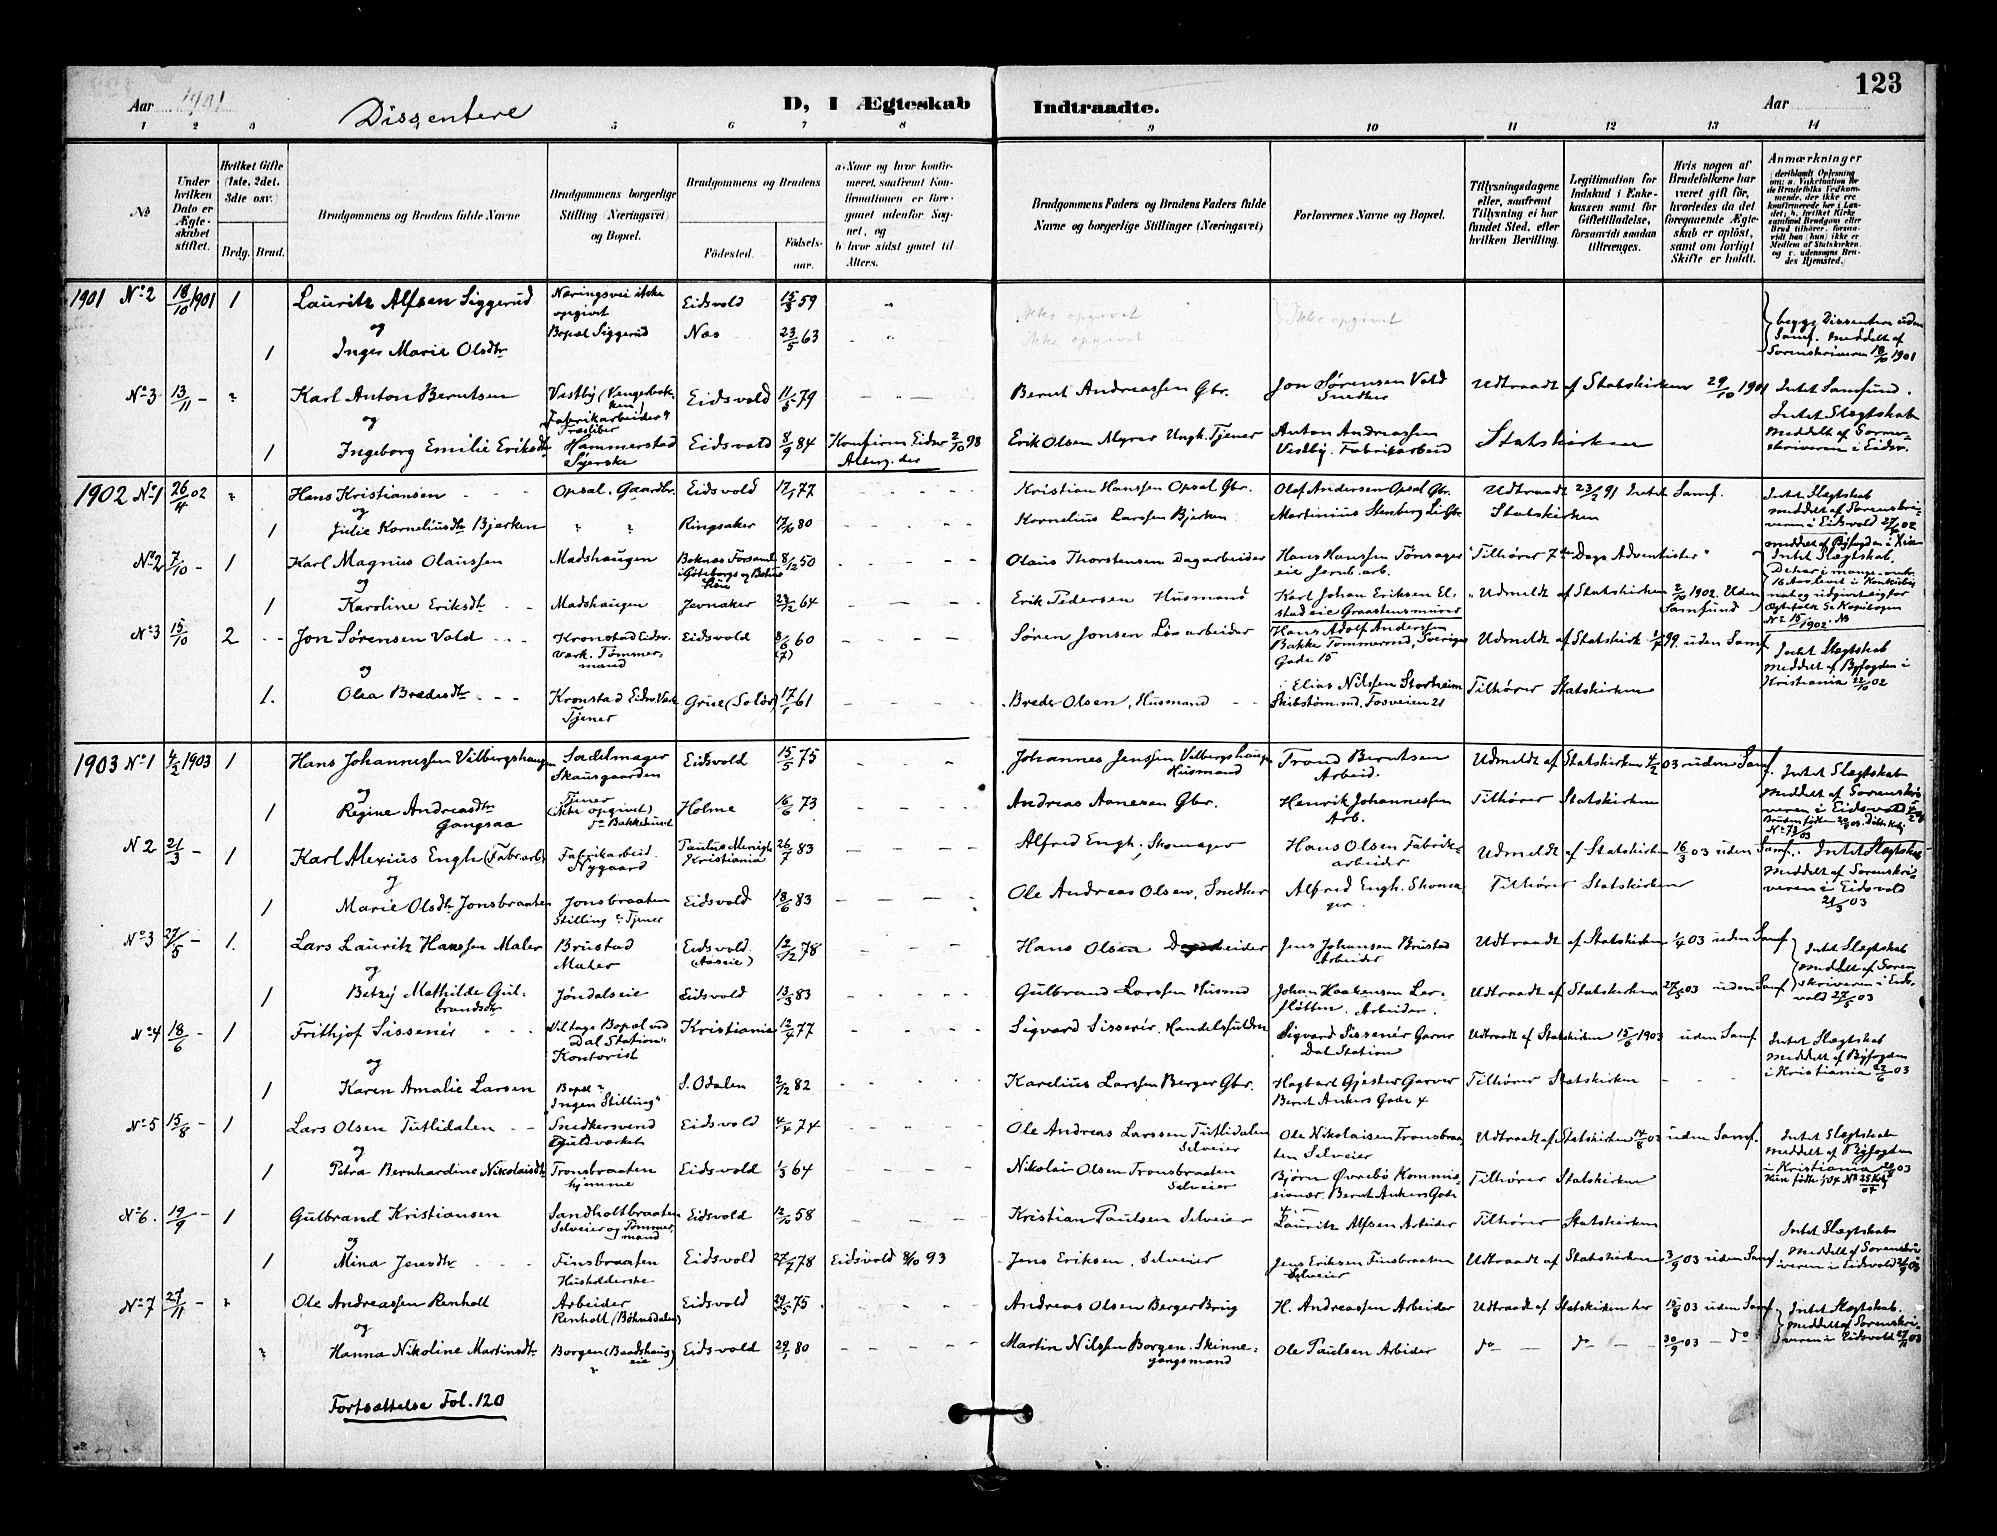 123
Aar 1901 Dissentere D, I Ægteskab Indtraadte. Aar
1 2 3 5 6 7 8 9 10 11 12 13 14
No
Under hvilken Dato er Ægteskabet stiftet.
Hvilket Gifte (1ste, 2det, 3die osv.)
Brdg. Brud.
Brudgommens og Brudens fulde Navne
Brudgommens borgerlige Stilling (Næringsvei) og Bopæl.
Brudgommens og Brudens
Fødested. Fødselsaar.
a. Naar og hvor konfirmeret, saafremt Konfirmationen er foregaaet udenfor Sognet, og
b. hvor sidst gaaet til Alters.
Brudgommens Faders og Brudens Faders fulde Navne og borgerlige Stillinger (Næringsvei)
Forlovernes Navne og Bopæl.
Tillysningsdagene eller, saafremt Tillysning ei har fundet Sted, efter hvilken Bevilling.
Legitimation for Indskud i Enkekassen samt for Giftetilladelse, forsaavidt saadan tiltrænges.
Hvis nogen af Brudefolkene har været gift før, hvorledes da det foregaaende Ægteskab er opløst, samt om lovligt Skifte er holdt.
Anmærkninger
1901 No 2 18/10 1901 1 Lauritz Alfsen Siggerud Næringsvei ikke opgivet Eidsvold 15/3 59 Ikke opgivet Ikke opgivet
og Bopæl Siggerud
1 Inger Marie Olsdtr Næs 23/5 63 Ikke opgivet begge Dissentere uden Samf. meddelt af Sorenskriveren 18/10 1901
No 3 13/11 - " Karl Anton Berntsen Vestby Fabrikarbeider Eidsvold 11/5 79 Bernt Andreassen Gbr. Jon Sørensen Vold Snedker Udtraadt af Statskirken 29/10 1901 Intet Samfund.
og
1 Ingeborg Emilie Eriksdtr Hammerstad Syerske Eidsvold 8/9 84 Konfirm Eidsv 2/10 98 Erik Olsen Myrer Ungk. Tjener Anton Andreassen Vestby. Fabrikarbeid Statskirken Intet Slægtskab meddelt af Sorenskriveren i Eidsv.
1902 No 1 26/4 02 " Hans Kristiansen Opsal. Gaardbr. Eidsvold 17/1 77 Kristian Hansen Opsal Gbr. Olaf Andersen Opsal Gbr. Udtraadt 23/2 91 Intet Samf. Intet Slægtskab
og
1 Julie Korneliusdtr Bjerken " " Ringsaker 80 Kornelius Larssen Bjerken Martinius Stenberg Statskirken meddelt af Sorenskriveren i Eidsvold 27/4 02
No 2 7/10 - 1 Karl Magnus Olaussen Madshaugen 8/12 50 Olaus Thorstensen Dagarbeider Hans Hanssen Tønsager eie Jernb. arb. "Tilhører 7de Dags Adventister" Intet Slægtskab.
og
1 Karoline Eriksdtr Madshaugen Jevnaker 23/12 64 Erik Pedersen Husmand Karl Johan Eriksen Elstad eie Graastensmurer Udmeldt af Statskirken 2/10 1902. Uden Samfund
No 3 15/10 2 Jon Sørensen Vold Kronstad Eidsv. værk. Tømmermand Eidsvold 8/6 60 Søren Jonsen Løsarbeider Hans Adolf Andersen Bakke Tømmermd, Sveriges Gade 15 Udmeldt af Statskirk 99. uden Samf.
og
1. Olea Bredesdtr Kronstad Eidsv. Værk Tjener Grue (Solør) 17/1 61 Brede Olsen, Husmand Elias Nilssen Storheim Skibstøm.md, Fosveien 21 Tilhører Statskirken Intet Slægtskab meddelt af Byfogden i Kristiania 22/10 02
1903 No 1 4/2 1903 1 Hans Johannessen Vilbergshaugen Sadelmager Skausgaarden Eidsvold 15/5 75 Johannes Jenssen Vilbergshaugen Husmand Trond Berntsen Arbeid. Udmeldt af Statskirken 4/2 03 uden Samf. Intet Slægtskab
og
1 Regine Andreasdtr Gangsaa Tjener (ikke opgivet) do Bakkesund Holme 16/6 73 Andreas Aanesen Gbr. Henrik Johannessen Arb. Tilhører Statskirken meddelt af Sorenskriveren i Eidsvold
N 2 21/3 - 1 Karl Alexius Engh (Fabr.arb) Fabrikarbeid. Nygaard Paulus Menigh Kristiania 26/7 83 Alfred Engh, Skomager Hans Olsen Fabrikarbeider Udmeldt af Statskirken 16/3 03 uden Samf. Intet Slægtskab
og
1 Marie Olsdtr Jonsbraaten Jonsbraaten Stilling: Tjener Eidsvold 18/6 83 Ole Andreas Olsen, Snedker Alfred Engh. Skomager Tilhører Statskirken meddelt af Sorenskriveren i Eidsvold 21/3 03
No 3 27/5 - 1. Lars Lauritz Hanssen Maler Brustad Maler Eidsvold 12/12 78 Hans Olsen Dagarbeider Jens Johansen Brustad Arbeider Udtraadt af Statskirken 1/4 03 uden Samf Intet Slægtskab
og
1 Betzy Mathilde Gulbrandsdtr Jøndalseie Eidsvold 13/3 83 Gulbrand Larssen Husmd Johan Haakensen Arbeider. Udtraadt af Statskirken 27/5 03 uden Samf meddelt af Sorenskriveren i Eidsvold 27/5 03
No 4 18/6 - 1 Frithjof Sissenér Bopæl ved Dal Station Kontorist Kristiania 12/4 77 Sigvard Sissenér, Handelsfuldm Sigvard Sissenér Garver Dal Station Udtraadt af Statskirken 15/6 1903 uden Samf Intet Slægtskab
og
1 Karen Amalie Larsen Bopæl " Ingen Stilling S. Odalen 2/12 82 Karelius Larssen Berger Gbr. Hagbart Gjester Garver Bernt Ankers Gade 4 Tilhører Statskirken meddelt af Byfogden i Kristiania 22/6 03
No 5 15/8 - 1 Lars Olsen Tutlidalen Snedkersvend Guldværket Eidsvold 4/4 74 Ole Andreas Larssen Tutlidalen Selveier Ole Nikolaisen Tronsbraaten Selveier Udtraadt af Statskirken 14/8 03 uden Samf. Intet Slægtskab
og
1 Petra Bernhardine Nikolaisdtr Tronsbraaten hjemme Eidsvold 1/3 64 Nikolai Olsen Tronsbraaten Selveier Bjørn Øvrebø Kommissionær. Bernt Ankers Gade Tilhører Statskirken meddelt af Byfogden i Kristiania
No 6. 19/9 - 1 Gulbrand Kristiansen Sandholtbraaten Selveier og Tømmermand Eidsvold 12/10 58 Kristian Paulsen Selveier Lauritz Alfsen Arbeider Tilhører Statskirken Intet Slægtskab
og
1 Mina Jensdtr Finsbraaten Husholderske Eidsvold 27/7 78 Eidsvold 8/10 93 Jens Eriksen, Selveier Jens Eriksen Finsbraaten Selveier Udtraadt af Statskirken 3/9 03 uden Samf meddelt af Sorenskriveren i Eidsvold
No 7 27/11 - " Ole Andreassen Renholt Arbeider Renholt (Bøhnsdalen) Eidsvold 29/5 75 Andreas Olsen Berger Brug H. Andreassen Arbeider Udtraadt af Statskirken 15/8 03 uden Samf Intet Slægtskab.
og
" Hanna Nikoline Martinsdtr Borgen (Baadshaug eie) Eidsvold 29/1 80 Martin Nilssen Borgen. Skinnegangsmand Ole Paulsen Arbeider do do 30/9 03 - do meddelt af Sorenskriveren i Eidsvold
Fortsættelse Fol. 120